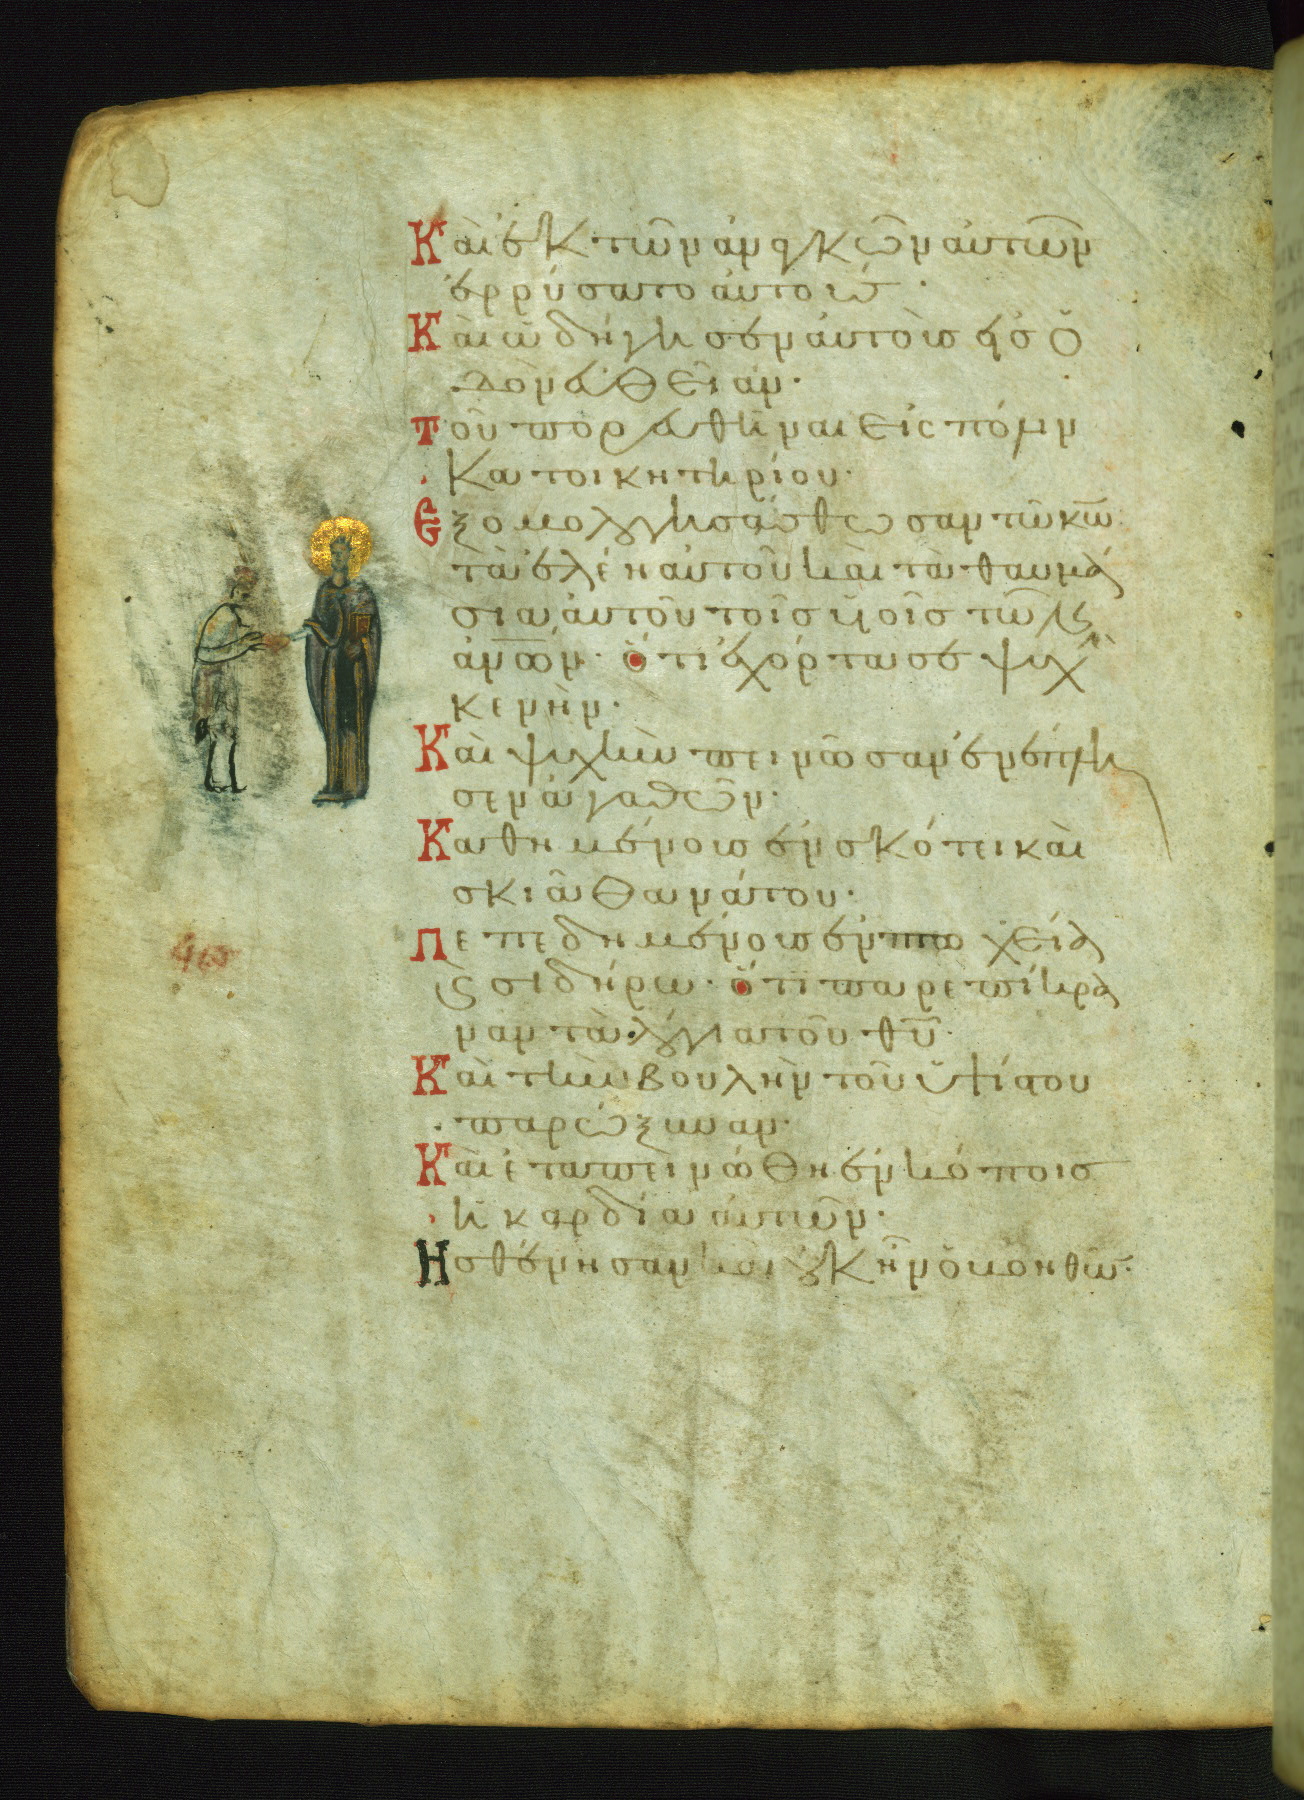 Καὶ ἐκ τῶν ἀναγκῶν αὐτῶν
ἐρρύσατο αὐτούς·
Καὶ ὡδήγησεν αὐτοὺς εἰς ὁ
δὸν εὐθεῖαν·
τοῦ πορευθῆναι εἰς πόλιν
κατοικητηρίου·
Ἐξομολογησάσθωσαν τῶ κω
τὰ ἐλέη αὐτοῦ καὶ τὰ θαυμά
σια αὐτοῦ τοῖς υἱοῖς τῶν
ἀνων· ὅτι ἐχόρτασε ψυχὴν
κενὴν·
Καὶ ψυχὴν πεινῶσαν ἐνέπλη
σεν ἀγαθῶν·
Καθημένους ἐν σκότει καὶ
σκιᾶ θανάτου·
Πεπεδημένους ἐν πτω χεία
ϗ σιδήρω· ὅτι παρεπίκρα
ναν τὰ λόγια τοῦ θυ·
Καὶ τὴν βουλὴν τοῦ ὑψίστου
παρώξυναν·
Καὶ ἐταπεινώθη ἐν κόποις
ἡ καρδία αὐτῶν·
Ἠσθένησαν καὶ οὐκ ἦν ὁ βοηθῶν·